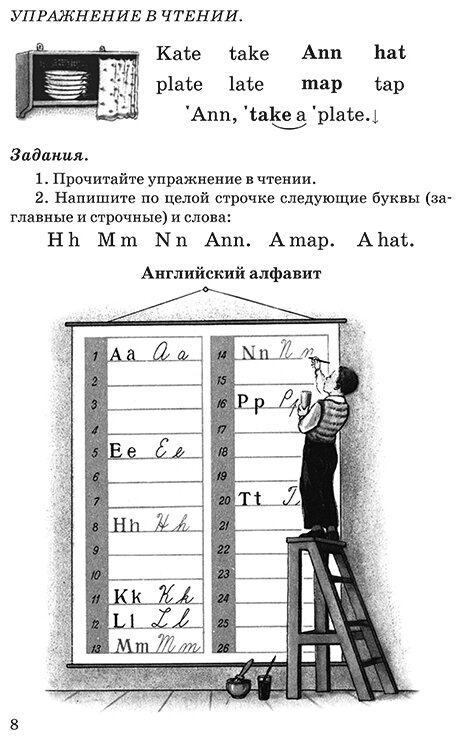 УПРАЖНЕНИЕ В ЧТЕНИИ.
Kate take Ann hat
plate late map tap
ˈAnn, ˈtake a ˈplate.↓
Задания.
1. Прочитайте упражнение в чтении.
2. Напишите по целой строчке следующие буквы (за-
главные и строчные) и слова:
H h M m N n Ann. A map. A hat.
Английский алфавит
1 Aa A a
2
3
4
5 Ee E e
6
7
8 Hh H h
9
10
11 Kk K k
12 Ll L l
13 Mm M m
14 Nn N n
15
16 Pp P p
17
18
19
20 Tt T
21
22
23
24
25
26
8